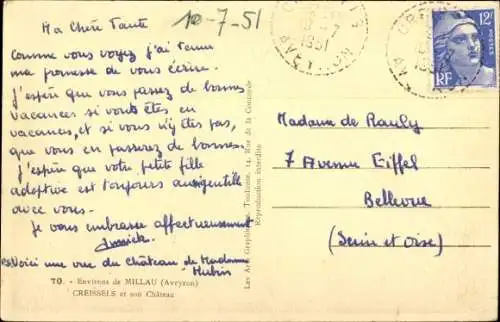 Ma Chère Tante
10-7-51
Comme vous voyez j'ai tenu
ma promesse de vous écrire.
J'espère que vous passez de bonnes
vacances si vous êtes en
vacances, et si vous n'y êtes pas,
que vous en passerez de bonnes.
J'espère que votre petite fille
adoptive est toujours aussi gentille
avec vous.
Je vous embrasse affectueusement
Voici une vue du Château de Madame
Hubin
70. - Environs de MILLAU (Aveyron)
CREISSELS et son Château
Les Arts Graphiques, Toulouse, 14, Rue de la Concorde
Reproduction interdite
1951
12F
POSTES
RF
Madame de Rauly
7 Avenue Eiffel
Bellevue
(Seine et Oise)